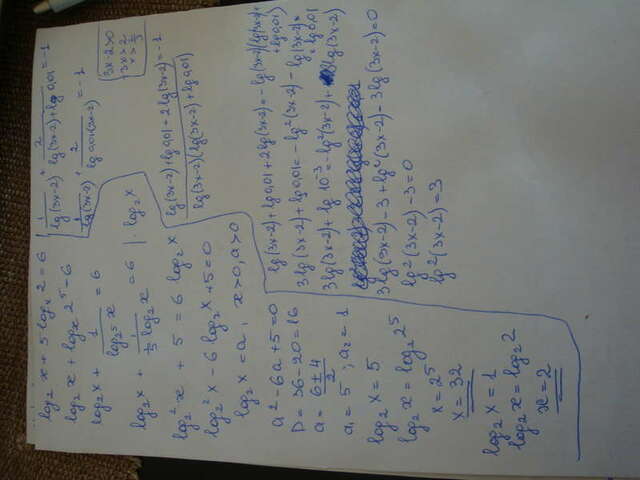 log₂ x + 5 logₓ 2 = 6
log₂ x + logₓ 2⁵ = 6
log₂ x + 1/log₂⁵ x = 6
log₂ x + 1/(1/5 log₂ x) = 6 | log₂ x
log₂² x + 5 = 6 log₂ x
log₂² x - 6 log₂ x + 5 = 0
log₂ x = a, x>0, a>0
a² - 6a + 5 = 0
D = 36 - 20 = 16
a = (6±4)/2
a₁ = 5; a₂ = 1
log₂ x = 5
log₂ x = log₂ 2⁵
x = 2⁵
x = 32
log₂ x = 1
log₂ x = log₂ 2
x = 2
1/lg(3x-2) + 2/(lg(3x-2)+lg 0,01) = -1
1/lg(3x-2) + 2/lg 0,01(3x-2) = -1
3x-2>0
3x>2
x > 2/3
(lg(3x-2)+lg 0,01+2lg(3x-2))/(lg(3x-2)(lg(3x-2)+lg 0,01)) = -1
lg(3x-2)+lg 0,01+2lg(3x-2) = -lg(3x-2)(lg(3x-2)+lg 0,01)
3lg(3x-2)+lg 0,01 = -lg²(3x-2) - lg(3x-2)×
× lg 0,01
3lg(3x-2)+lg 10⁻³ = -lg²(3x-2)+3lg(3x-2)
3lg(3x-2)-3+lg²(3x-2)-3lg(3x-2)=0
lg²(3x-2)-3=0
lg²(3x-2)=3